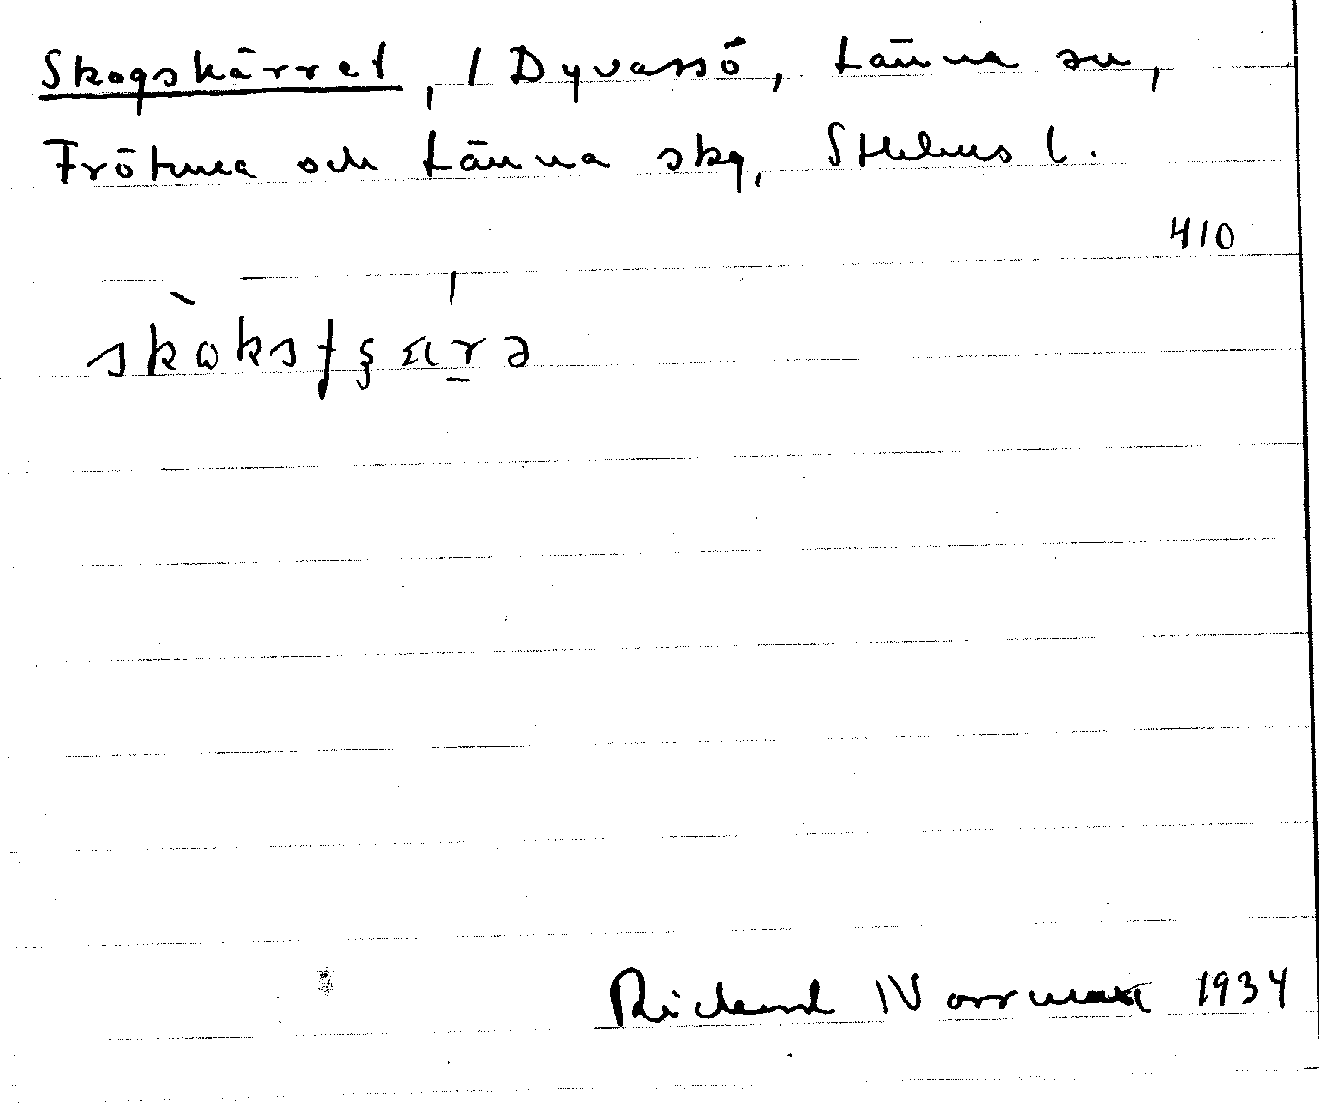 Skogskärret, / Dyvassö, Länna sn,
Frötuna och Länna skg, Sthlms l.
410
skòkstʂä́rə
Rickard Norrman 1934